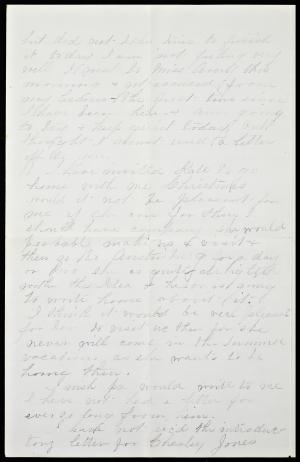 but did not have time to finish
it today I am not feeling very
well I went to Miss this
morning & got excused from
my lessons the first time since
I have been here & am going
to try & keep quiet today but
thought I must send a letter
off to you.
I have invited Kate to go
home with me Christmas
would it not be pleasant for
me if she can for then I
should have company she would
probably make us a visit &
then go to for a day
or two she is quite delighted
with the idea & has or is going
to write home about it.
I think it would be very pleasant
for her to visit us then for she
never will come in the summer
vacation as she wants to be
home then.
I wish Pa would write to me
I have not had a letter for
ever so long from him.
I have not rec'd the introduc
tory letter for Chesley Jones